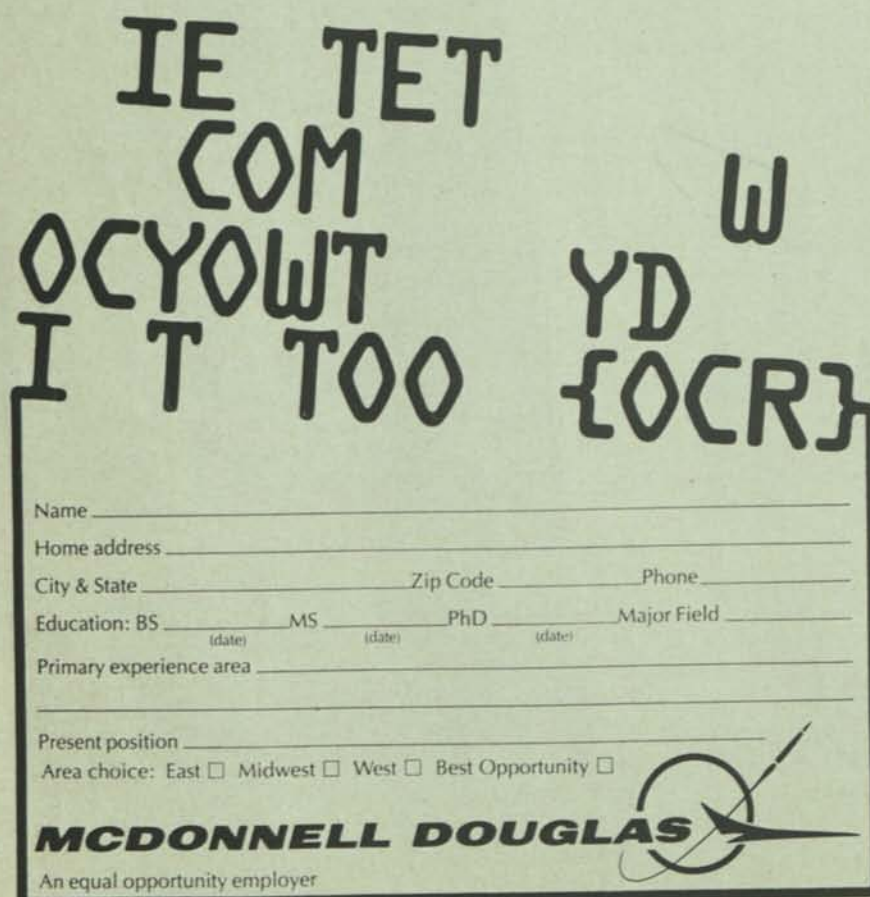 IE TET
COM W
OCYOWT YD
I T TOO {OCR}
Name
Home address
City & State Zip Code Phone
Education: BS MS PhD Major Field
(date) (date) (date)
Primary experience area
Present position
Area choice: East ☐ Midwest ☐ West ☐ Best Opportunity ☐
MCDONNELL DOUGLAS
An equal opportunity employer